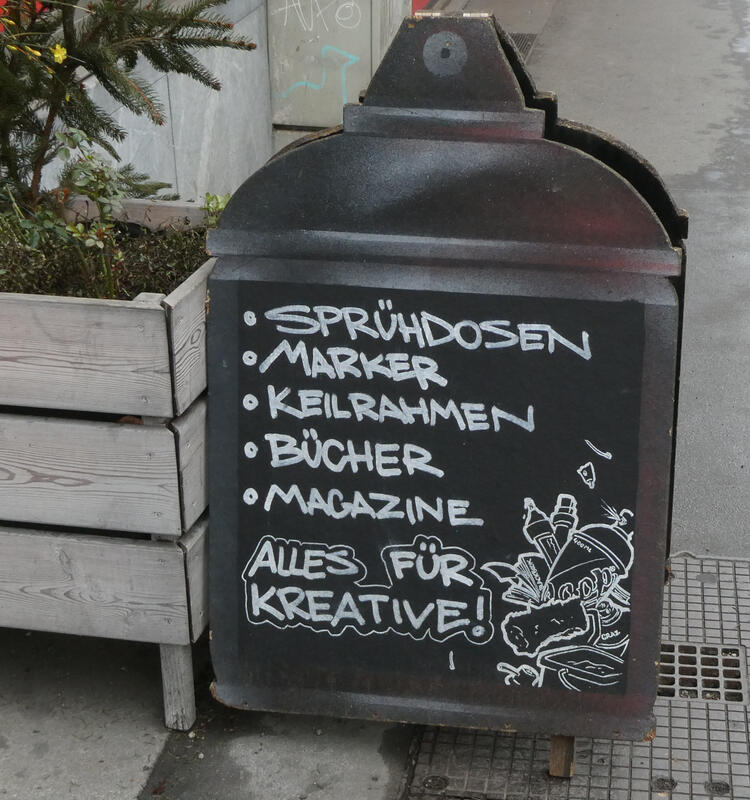 • SPRÜHDOSEN
• MARKER
• KEILRAHMEN
• BÜCHER
• MAGAZINE
ALLES FÜR
KREATIVE!
400ML
GRAZ